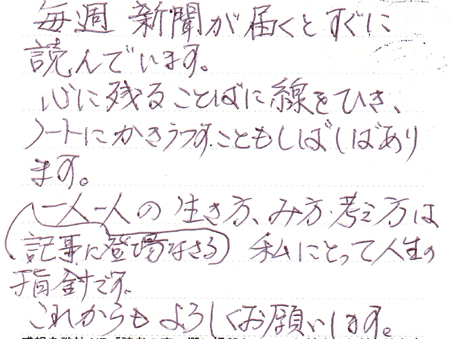 毎週 新聞が届くとすぐに
読んでいます。
心に残ることばに線をひき、
ノートにかきうつす.こともしばしばあり
ます。
一人一人の生き方、み方・考え方は
(記事に登場なさる) 私にとって人生の
指針です。
これからもよろしくお願いします。